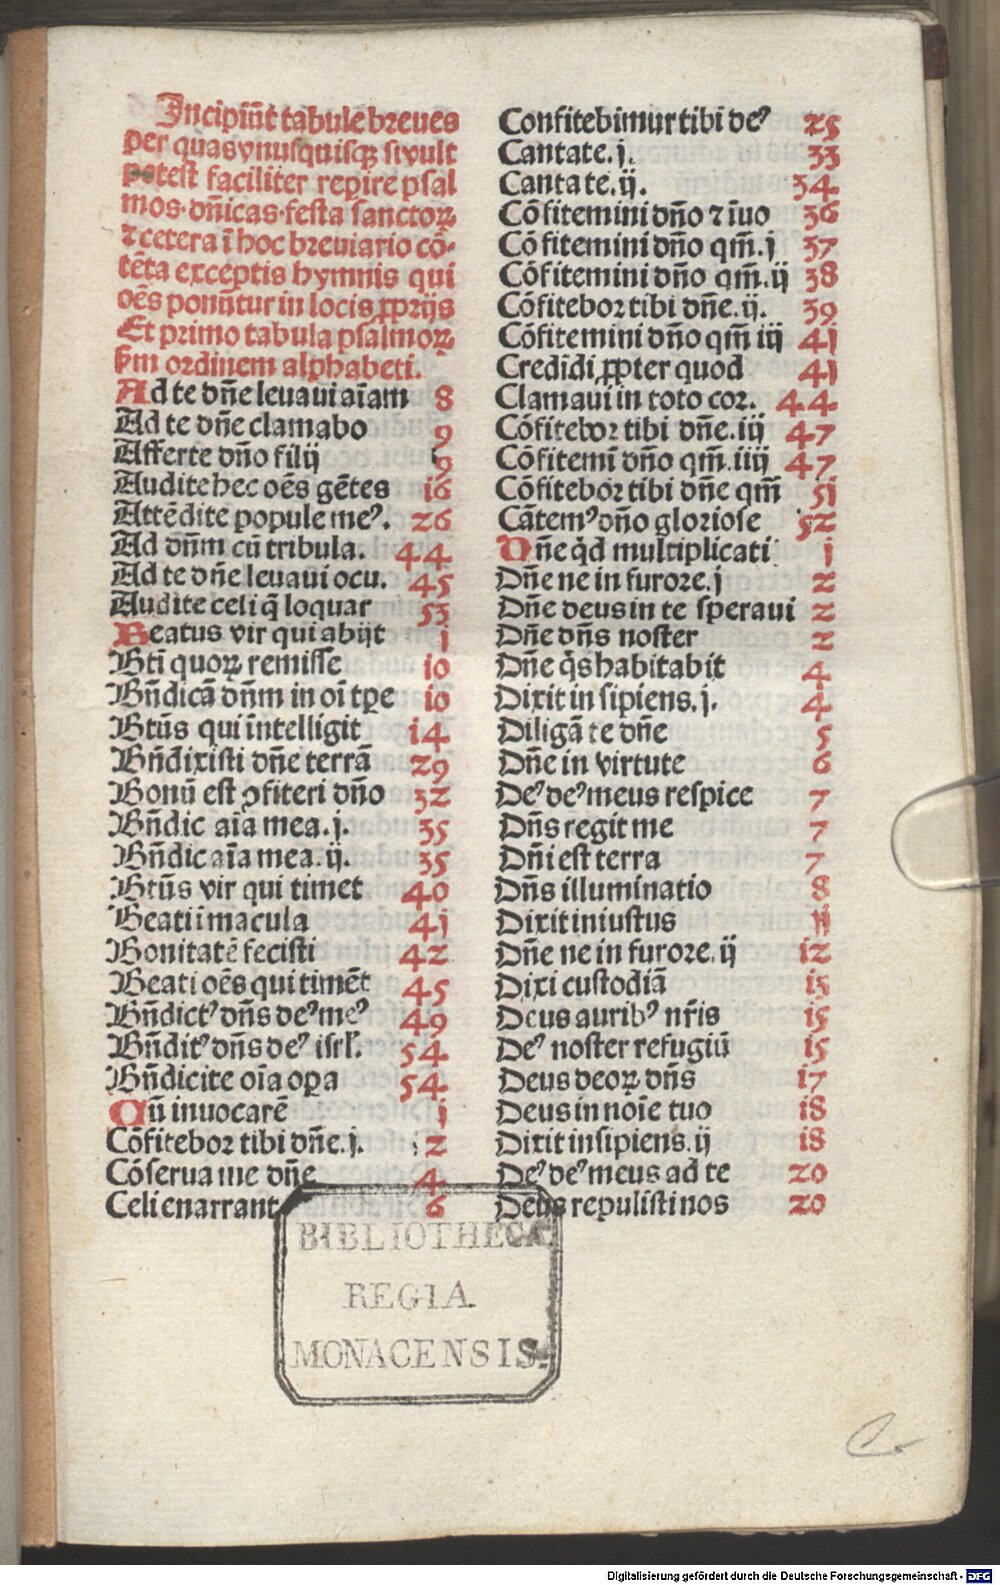 Incipiūt tabule breues
per quas vnusquisqꝫ si vult
potest faciliter reꝑire psal
mos·dn̄icas·festa sanctoꝝ
⁊ cetera ī hoc breuiario cō-
tēta exceptis hymnis qui
oēs ponūtur in locis ꝓprijs
Et primo tabula psalmoꝝ
ẜm ordinem alphabeti.
Ad te dn̄e leuaui aīam 8
Ad te dn̄e clamabo 9
Afferte dn̄o filij 9
Audite hec oēs gētes 16
Attēdite popule meꝰ. 26
Ad dn̄m cū tribula. 44
Ad te dn̄e leuaui ocu. 45
Audite celi q̄ loquar 53
Beatus vir qui abijt 1
Bt̄i quoꝝ remisse 10
Bn̄dicā dn̄m in oī tꝑe 10
Bt̄us qui īntelligit 14
Bn̄dixisti dn̄e terrā 29
Bonū est ꝯfiteri dn̄o 32
Bn̄dic aīa mea.j. 35
Bn̄dic aīa mea.ij. 35
Bt̄us vir qui timet 40
Beati īmacula 41
Bonitatē fecisti 42
Beati oēs qui timēt 45
Bn̄dictꝰ dn̄s deꝰ meꝰ 49
Bn̄ditꝰ dn̄s deꝰ isrl̄. 54
Bn̄dicite oīa oꝑa 54
Cū inuocarē 1
Cōfitebor tibi dn̄e.j. 2
Cōserua me dn̄e 4
Celi enarrant 6
Confitebimur tibi deꝰ 25
Cantate.j. 33
Cantate.ij. 34
Cōfitemini dn̄o ⁊ īuo 36
Cōfitemini dn̄o qm̄.j 37
Cōfitemini dn̄o qm̄.ij 38
Cōfitebor tibi dn̄e.ij. 39
Cōfitemini dn̄o qm̄ iij 41
Credidi ꝓpter quod 41
Clamaui in toto cor. 44
Cōfitebor tibi dn̄e.iij 47
Cōfitemī dn̄o qm̄.iiij 47
Cōfitebor tibi dn̄e qm̄ 51
Cātemꝰ dn̄o gloriose 52
Dn̄e qd̄ multiplicati 1
Dn̄e ne in furore.j 2
Dn̄e deus in te speraui 2
Dn̄e dn̄s noster 2
Dn̄e q̄s habitabit 4
Dixit in sipiens.j. 4
Diligā te dn̄e 5
Dn̄e in virtute 6
Deꝰ deꝰ meus respice 7
Dn̄s regit me 7
Dn̄i est terra 7
Dn̄s illuminatio 8
Dixit iniustus 11
Dn̄e ne in furore.ij 12
Dixi custodiā 13
Deus auribꝰ nr̄is 15
Deꝰ noster refugiū 15
Deus deoꝝ dn̄s 17
Deus in noīe tuo 18
Dixit insipiens.ij 18
Deꝰ deꝰ meus ad te 20
Deus repulisti nos 20
BIBLIOTHECA
REGIA
MONACENSIS.
Digitalisierung gefördert durch die Deutsche Forschungsgemeinschaft - DFG